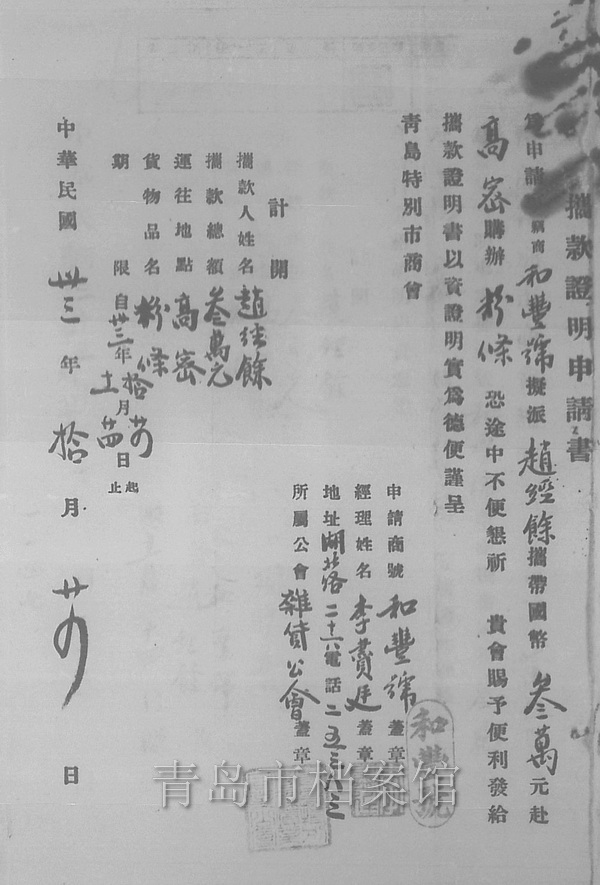 攜款證明申請書
為申請 竊商 和豐號 擬派 趙經餘 攜帶國幣 叁萬 元赴
高密 購辦 粉條 恐途中不便懇祈 貴會賜予便利發給
攜款證明書以資證明實為德便謹呈
青島特別市商會
計開
攜款人姓名 趙經餘
攜款總額 叁萬元
運往地點 高密
貨物品名 粉條
期限 自卅三年 拾月 日起 十一月 廿四日止
申請商號 和豐號 蓋章
經理姓名 李 廷 蓋章
地址 湖北路 電話
所屬公會 雜貨公會 蓋章
中華民國 卅三 年 拾 月 日
和豐號
青岛市档案馆